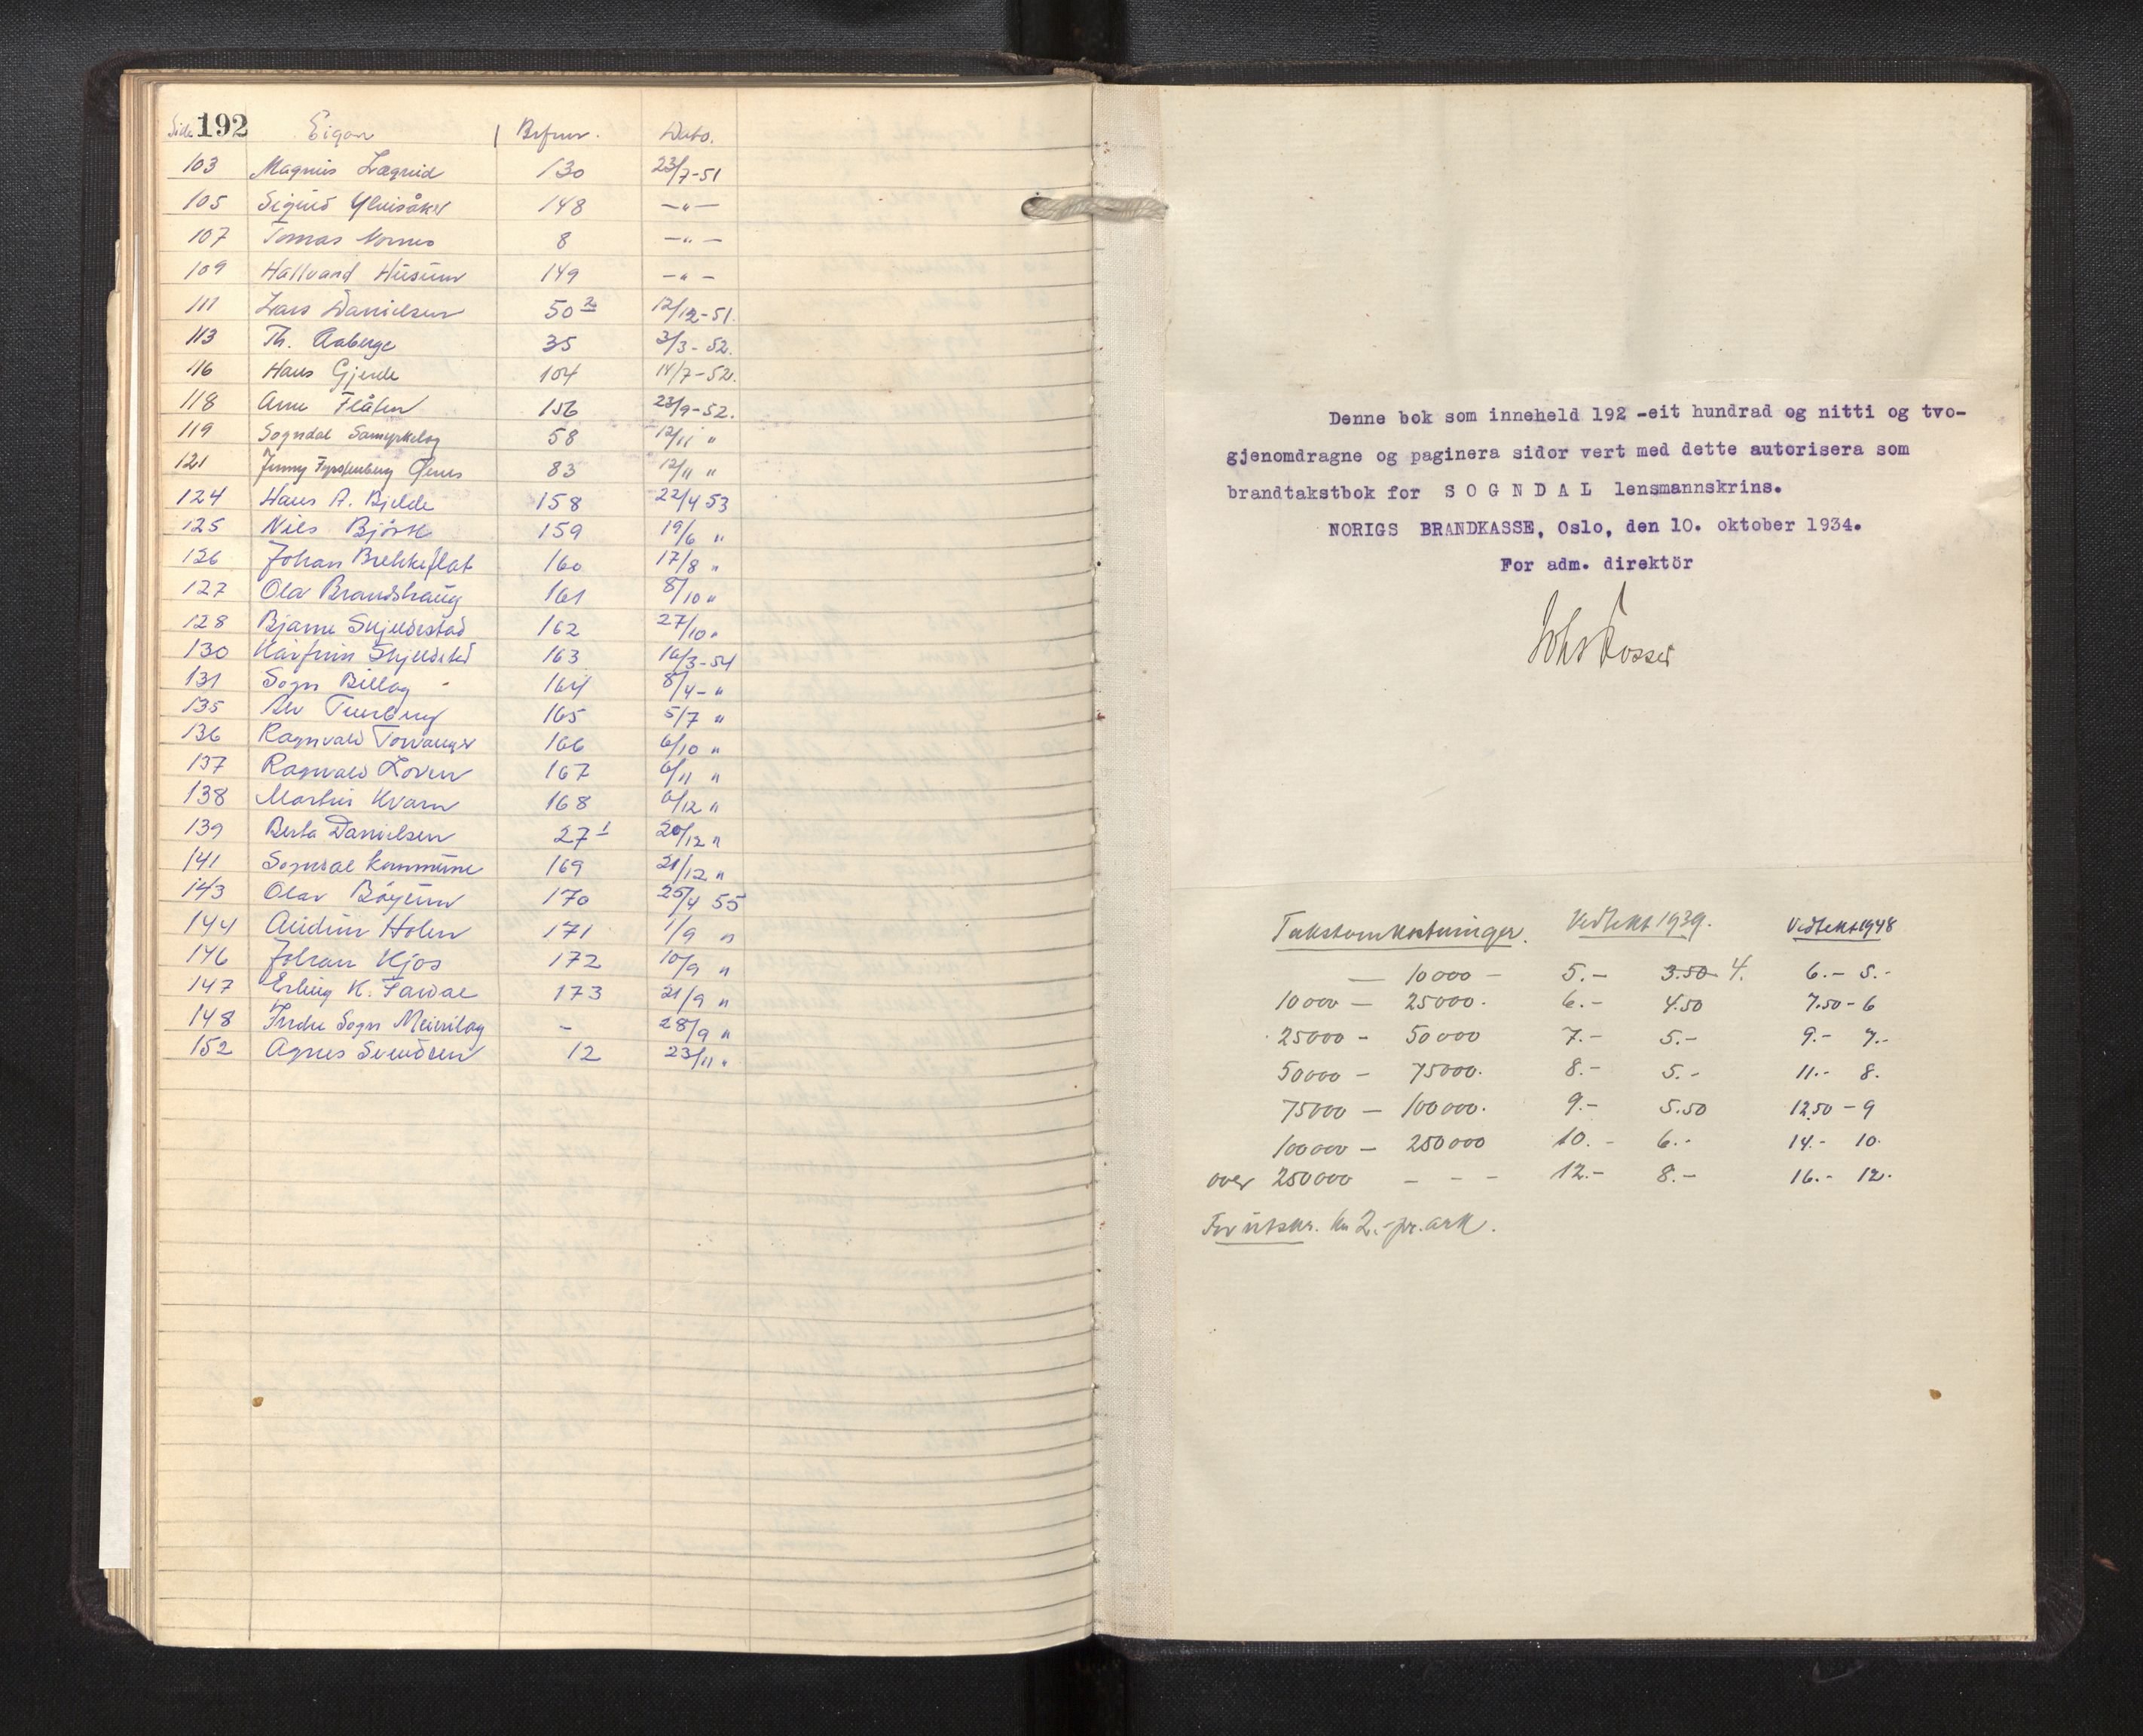 Side 192 Eigar Brfnr. Dato.
103 Magnus Lægreid 130 23/7-51
105 Sigurd Ylvisåker 148 -"-
107 Tomas Nornes 8 -"-
109 Hallvard Husum 149 -"-
111 Lars Danielsen 50 2 12/12-51.
113 Th. Aaberge 35 3/3-52.
116 Hans Gjerde 104 14/7-52.
118 Arne Flåten 156 23/9-52.
119 Sogndal Samyrkelag 58 12/11 "
121 Jenny 83 12/11 "
124 Hans A. Bjelde 158 22/4 53
125 Nils Björk 159 19/6 "
126 Johan Brekkeflat 160 17/8 "
127 Ola Brandshaug 161 8/10 "
128 Bjarne Skjeldestad 162 27/10 "
130 Kårfinn Skjeldestad 163 16/3-54
131 Sogn Billag 164 8/4- "
135 165 5/7 "
136 Ragnvald Torvanger 166 6/10 "
137 Ragnvald Loven 167 6/11 "
138 Martin Kvam 168 6/12 "
139 Berta Danielsen 27 1 20/12 "
141 Sogndal kommune 169 21/12 "
143 Olav Böyum 170 25/4 55
144 Audun Holen 171 1/9 "
146 Johan Kjos 172 10/9 "
147 Erling K. Fardal 173 21/9 "
148 Indre Sogn Meierilag - 28/9 "
152 Agnes Svendsen 12 23/11 "
Denne bok som inneheld 192 -eit hundrad og nitti og tvo-
gjenomdragne og paginera sidor vert med dette autorisera som
brandtakstbok for S O G N D A L lensmannskrins.
NORIGS BRANDKASSE, Oslo, den 10. oktober 1934.
For adm. direktör
Takstomkostninger. Vedtekt 1939. Vedtekt 1948
— 10000 - 5.- 3.50 4. 6.- 5.-
10000 — 25000. 6.- 4.50 7.50 - 6
25000 - 50000 7.- 5.- 9.- 7.-
50000 - 75000. 8.- 5.- 11.- 8.
75000 — 100000. 9.- 5.50 12.50 - 9
100000 - 250000 10.- 6.- 14.- 10.
over 250000 - - - 12.- 8.- 16.- 12.
For utskr. kr 2.- pr. ark.